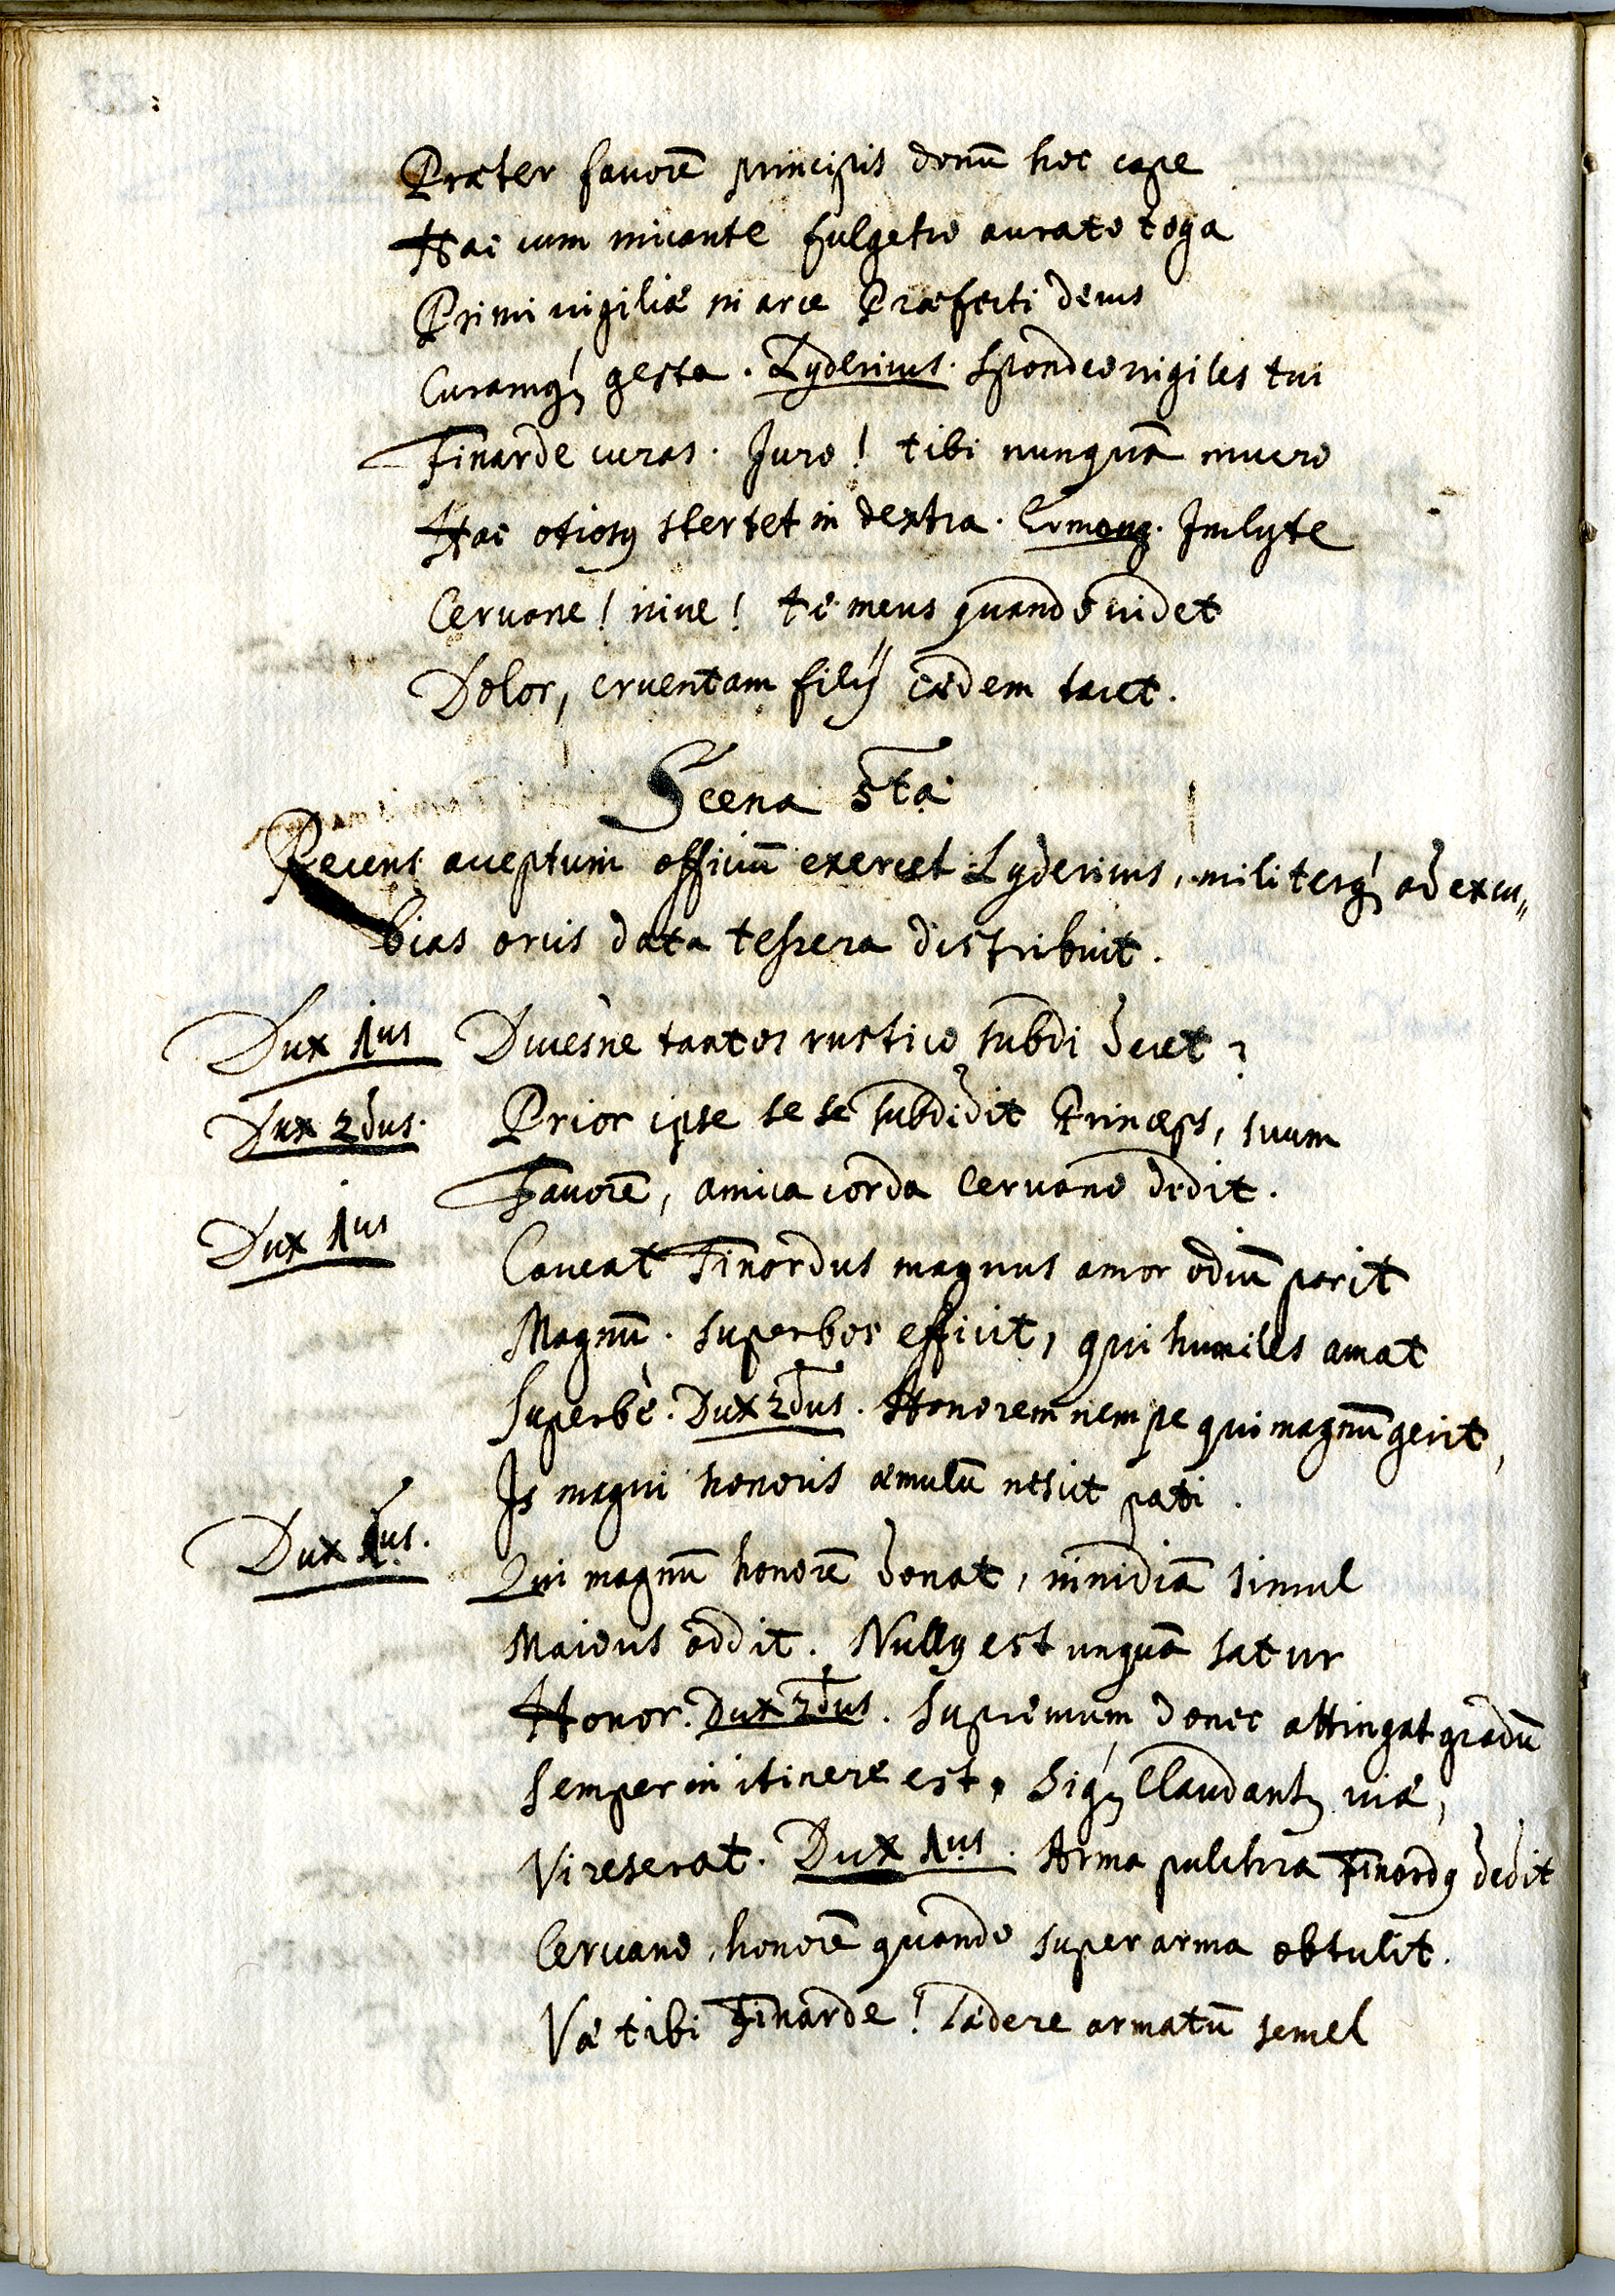 Præter favorē principis donū hoc cape
Hac cum micante fulgetro aurato toga
Primi vigiliæ in arce Præfecti decus
Curamq́; gesta. Lydericus. Spondeo vigiles tui
Finarde curas. Juro! tibi nunquā mucro
Hac otiosꝰ stertet in dextra. Ermong. Inclyte
Cervane! vive! te meus quando videt
Dolor, cruentam filij cædem tacet.
Scena 5ta
Recens acceptum officiū exercet Lydericus, militesq́; ad excu„
bias orcis data tessera distribuit.
Dux 1us Ducesne tantos rustico subdi decet?
Dux 2dus. Prior ipse se se subdidit Princeps, suum
Favorē, amica corda Cervano dedit.
Dux 1us Caveat Finardus magnus amor odiū parit
Magnū. Superbos efficit, qui humiles amat
Superbè. Dux 2dus. Honorem nempe qui magnū gerit,
Is magni honoris æmulū nescit pati.
Dux 1us. Qui magnū honorē donat, invidiā simul
Maiorus addit. Nullꝰ est unquā satur
Honor. Dux 2dus. Supremum donec attingat gradū
Semper in itinere est, Siq́; claudantꝛ viæ,
Vi reserat. Dux 1us. Arma pulchra Finardꝰ dedit
Cervano, honorē quando super arma obtulit.
Væ tibi Finarde! Lædere armatū semel